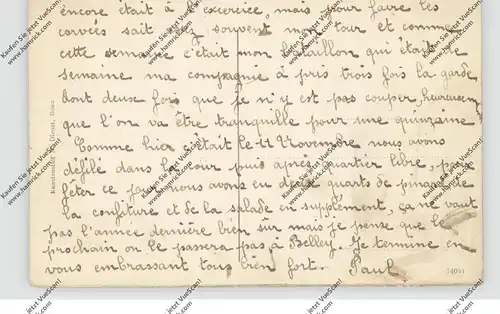 encore était à l'exercice, mais pour faire les
corvées sait assez souvent mon tour et comme
cette semaine c'était mon bataillon qui était de
semaine ma compagnie à pris trois fois la garde
dont deux fois que je n'y est pas couper, heureusem
que l'on va être tranquille pour une quinzaine
Comme hier s'était le 11 Novembre nous avons
défilé dans la cour puis après quartier libre, pour
fêter ce jour nous avons eu deux quarts de pinard de
la confiture et de la salade en supplément, ça ne vaut
pas l'année dernière bien sur mais je pense que le
prochain on le passera pas à Belley. Je termine en
vous embrassant tous bien fort. Paul
14011
Jetzt Viele VueScan!
Kaufen Sie
www.hamrick.com